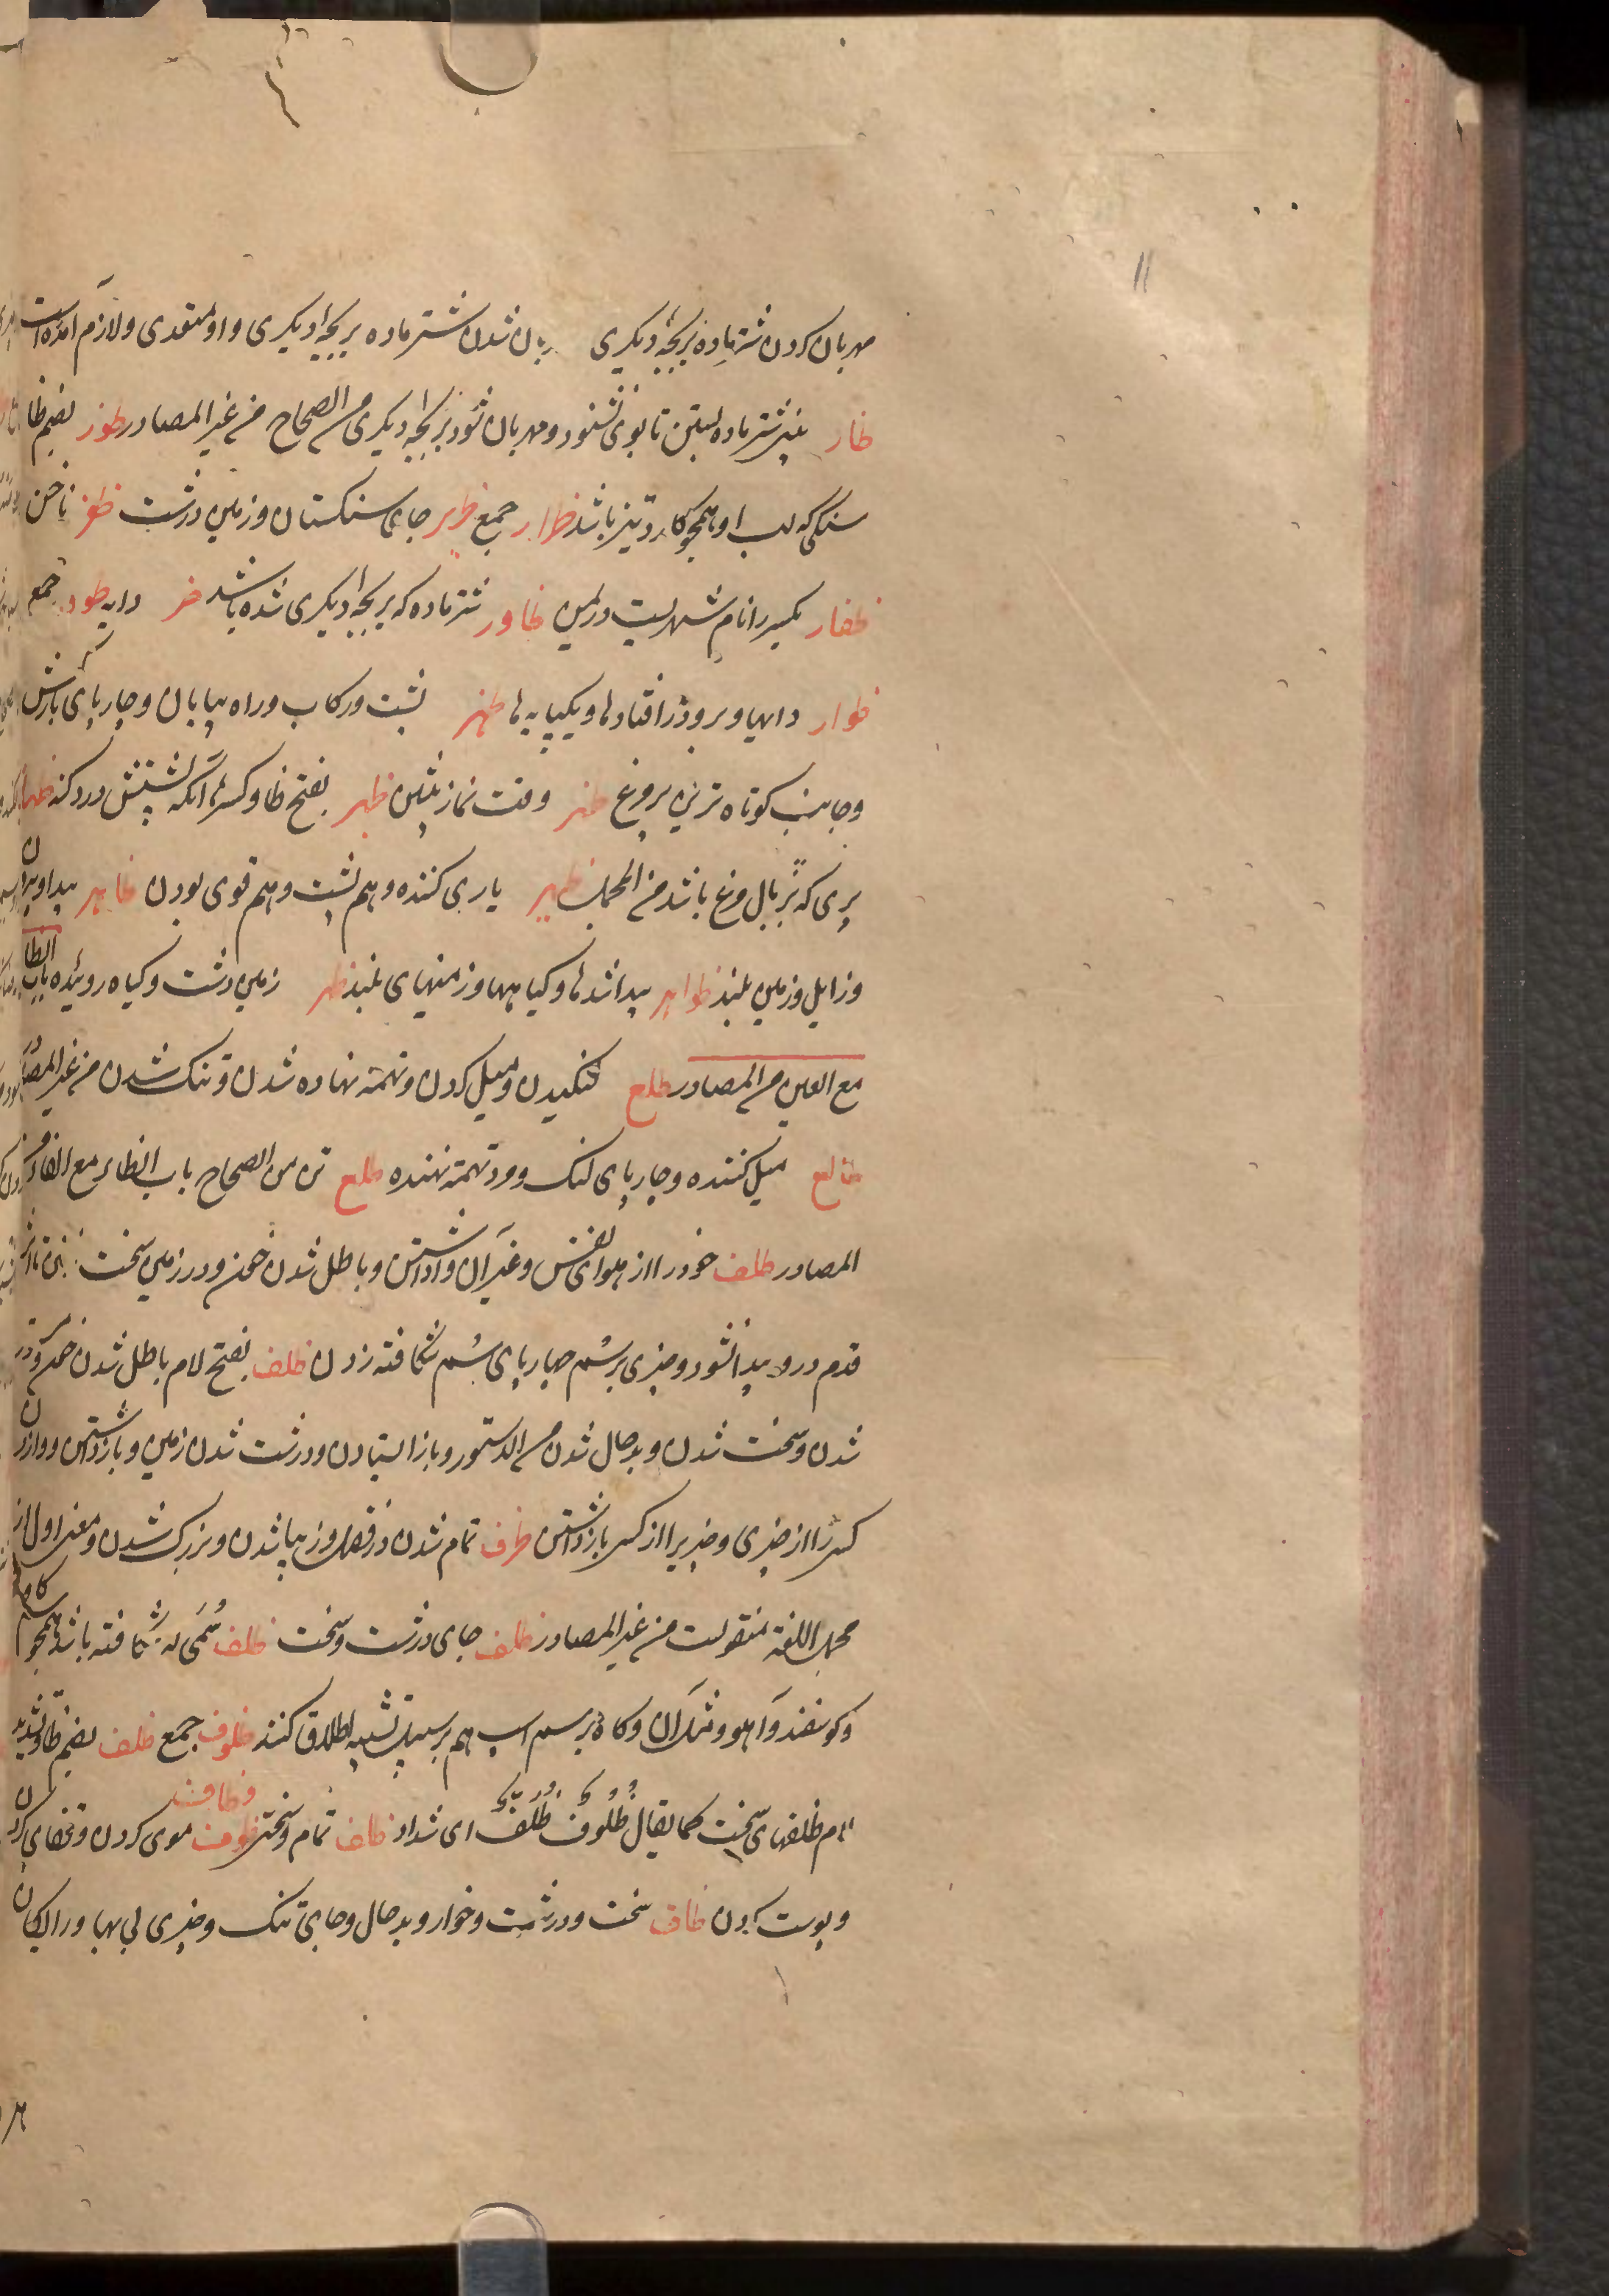 مهربان کردن شتر ماده بر بچهٔ دیکری بان شدن شتر ماده بر بچهٔ دیکری و او متعدی و لازم آمده است
ظار بینی شتر ماده بستن تا بوی نشنود و مهربان شود بر بچهٔ دیکری من الصحاح من غیر المصادر ظرر بضم ظا
سنکی که لب او همچو کارد تیز باشد ظرار جمع ظریر جایکاه سنکستان و زمین درشت ظفر ناخن
ظفار بکسر را نام شهریست در یمن ظاور شتر ماده که بر بچهٔ دیکری شده باشد ظیر دایه ظور جمع
ظوار دایها و بر و در افتادها و یکپایه ها ظهر پشت و رکاب و راه بیابان و چارپای بارکش
و جانب کوتاه ترین پر مرغ ظهر وقت نماز پیشین ظهر بفتح ظا و کسر ها آنکه پشتش درد کند ظهار
پری که بر بال مرغ باشد من المجمل ظهیر یاری کننده و هم پشت و هم قوی بودن ظاهر پیدا و بیرون
و زایل و زمین بلند ظواهر پیدا شدها و کیاهها و زمینهای بلند ظهر زمین درشت و کیاه روئیده باب الظا
مع العین من المصادر ظلع لنکیدن و میل کردن و تهمة نهاده شدن و تنک شدن من غیر المصادر
ظالع میل کننده و چارپای لنک و مرد تهمة نهنده ظلع من الصحاح باب الظاء مع الفاء من
المصادر ظلف خود را از هوای نفس و غیر آن وا داشتن و باطل شدن خون و در زمین سخت تا اثر
قدم در و پیدا نشود و چیزی بر سم چهارپای سم شکافته زدن ظلف بفتح لام باطل شدن خون و درشت
شدن و سخت شدن و بدحال شدن من الدستور و باز ایستادن و درشت شدن زمین و باز داشتن و وا زدن
کسی را از چیزی و چیزی را از کسی باز داشتن ظرف تمام شدن در فضل و زیبا شدن و بزرک شدن و معنی اول از
مجمل اللغة منقولست من غیر المصادر ظلف جای درشت و سخت ظلف سُمی که شکافته باشد همچو سم کاو
و کوسفند و آهو و مثل آن و کاه بر سم اسب هم بر سبیل تشبیه اطلاق کنند ظلوف جمع ظلف بضم ظا و تشدید
لام ظلفهای سخت کما یقال ظُلُوفٌ ظُلَّفٌ ای شداد ظلف تمام و سختتر ظوف و ظاف موی کردن و قفای کردن
و پوست کردن ظلف سخت و درشت و خوار و بدحال و جای تنک و چیزی بی بها و رایکان